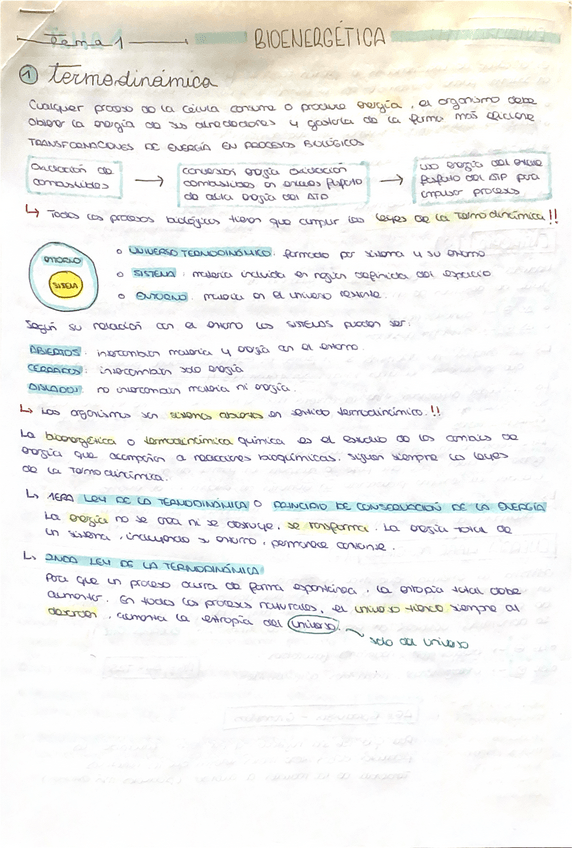 Tema 1 BIOENERGÉTICA
1 termodinámica
Cualquier proceso de la célula consume o produce energía, el organismo debe
obtener la energía de sus alrededores y gastarla de la forma más eficiente
TRANSFORMACIONES DE ENERGÍA EN PROCESOS BIOLÓGICOS
Oxidación de
combustibles
→
conversión energía oxidación
combustibles en enlaces fosfato
de alta energía del ATP
→
uso energía del enlace
fosfato del ATP para
impulsar procesos
↳ Todos los procesos biológicos tienen que cumplir las leyes de la termodinámica!!
ENTORNO
SISTEMA
o UNIVERSO TERMODINÁMICO: formado por sistema y su entorno
o SISTEMA: materia incluida en región definida del espacio
o ENTORNO: materia en el universo restante.
Según su relación con el entorno los SISTEMAS pueden ser:
ABIERTOS: intercambian materia y energía con el entorno.
CERRADOS: intercambian solo energía
AISLADOS: no intercambian materia ni energía.
↳ Los organismos son sistemas abiertos en sentido termodinámico!!
La bioenergética o termodinámica química es el estudio de los cambios de
energía que acompañan a reacciones bioquímicas. Siguen siempre las leyes
de la termodinámica.
↳ 1ERA LEY DE LA TERMODINÁMICA O PRINCIPIO DE CONSERVACIÓN DE LA ENERGÍA
La energía no se crea ni se destruye, se transforma. La energía total de
un sistema, incluyendo su entorno, permanece constante.
↳ 2NDA LEY DE LA TERMODINÁMICA
Para que un proceso ocurra de forma espontánea, la entropía total debe
aumentar. En todos los procesos naturales, el universo tiende siempre al
desorden, aumenta la entropía del universo.
solo del universo